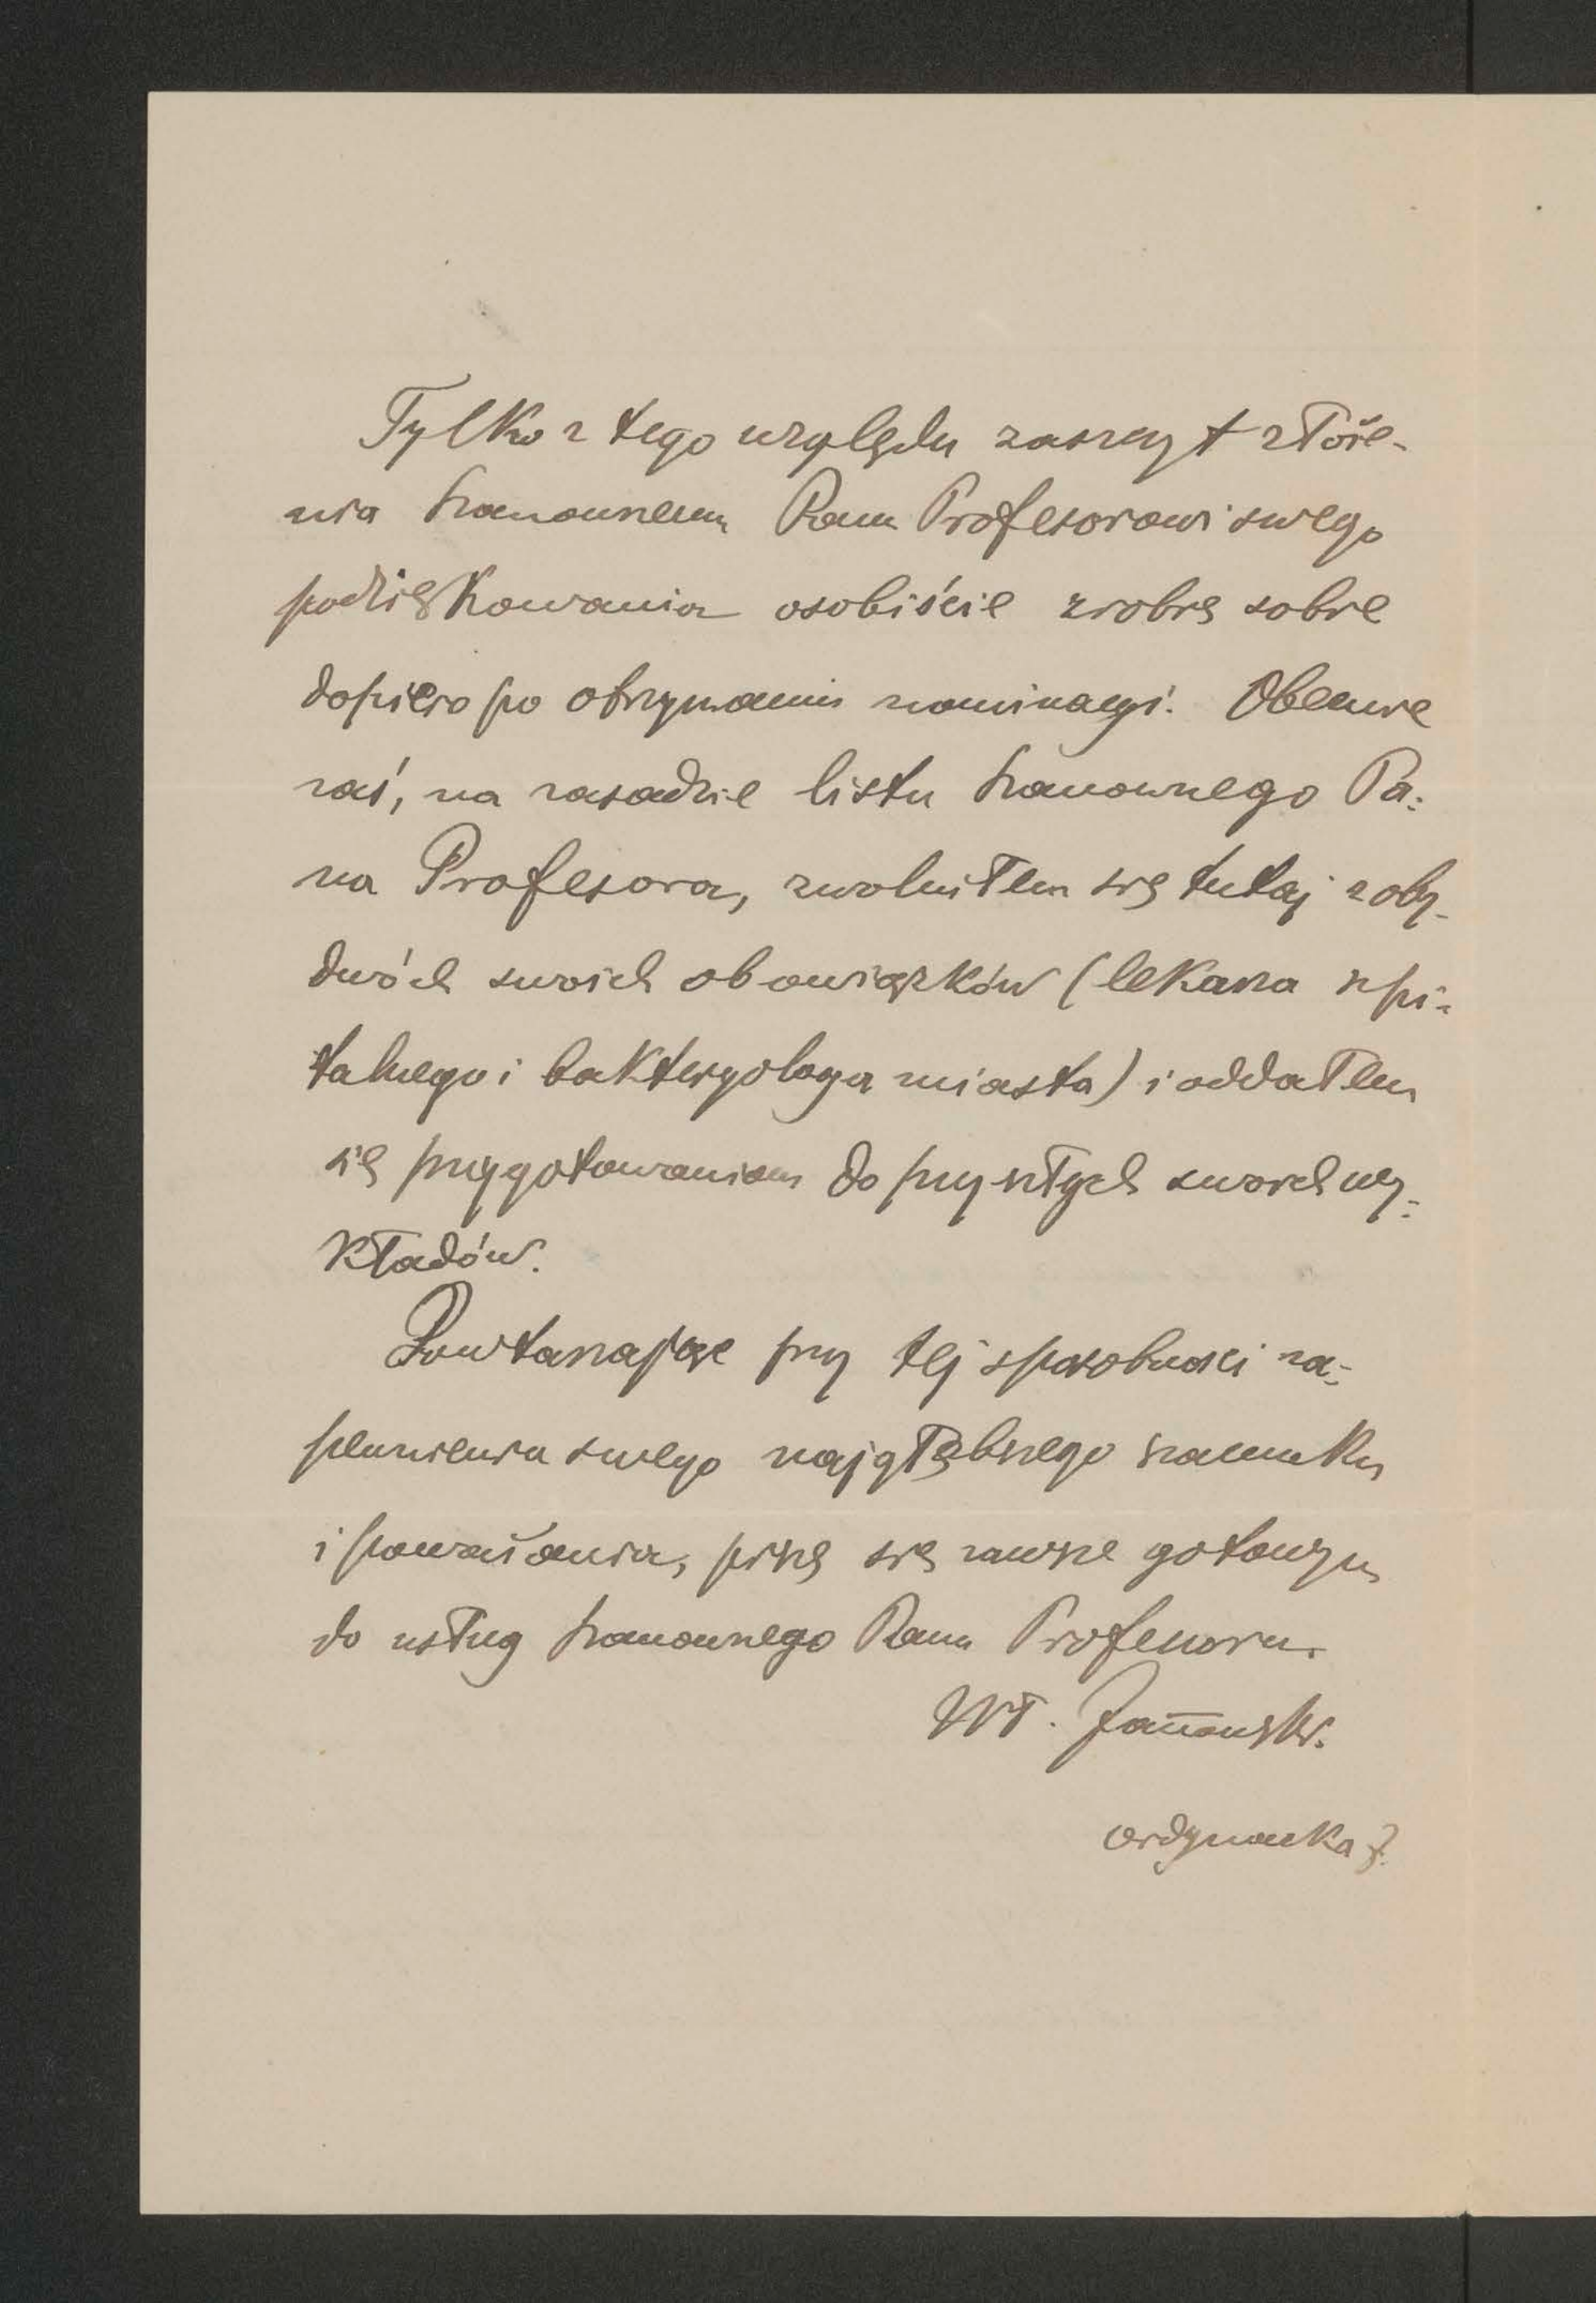 Tylko z tego względu zaszczyt złoże-
nia Szanownemu Panu Profesorowi swego
podziękowania osobiście zrobię sobie
dopiero po otrzymaniu nominacyi. Obecnie
zaś, na zasadzie listu Szanownego Pa-
na Profesora, zwolniłem się tutaj z oby-
dwóch swoich obowiązków (lekarza szpi-
talnego i bakteryologa miasta) i oddałem
się przygotowaniom do przyszłych swoich wy-
kładów.
Powtarzając przy tej sposobności za-
pewnienia swego najgłębszego szacunku
i poważania, piszę się zawsze gotowym
do usług Szanownego Pana Profesora.
Wł. Janowski.
Ordynacka 7.